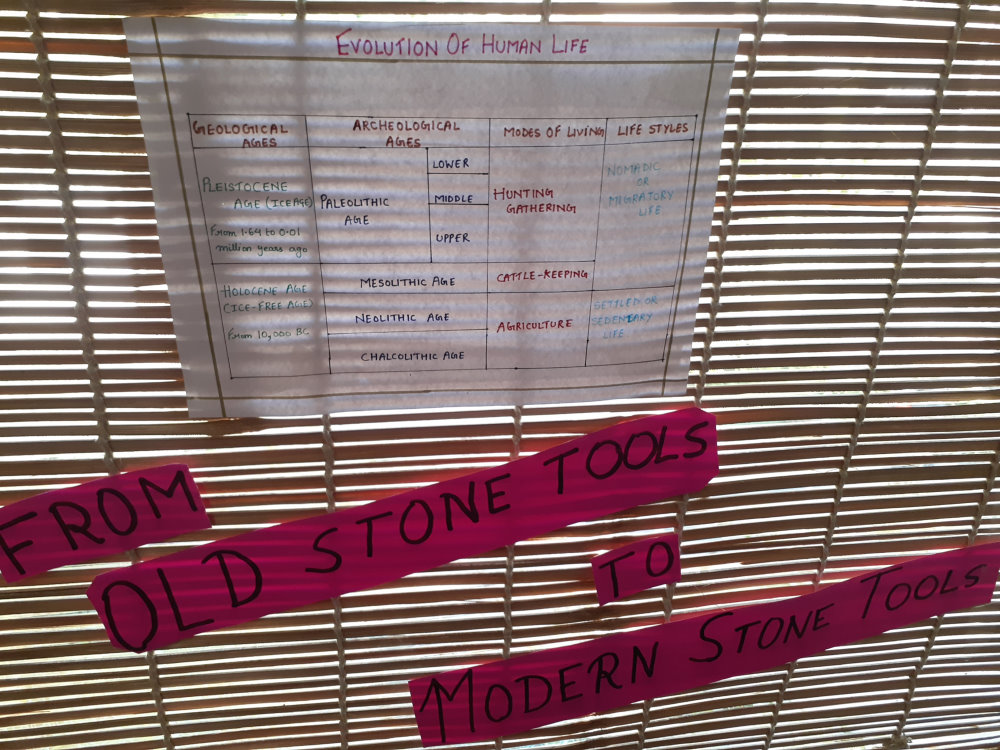 EVOLUTION OF HUMAN LIFE
GEOLOGICAL
AGES
ARCHEOLOGICAL
AGES
MODES OF LIVING
LIFE STYLES
PLEISTOCENE
AGE (ICE AGE)
From 1.64 to 0.01
million years ago
PALEOLITHIC
AGE
LOWER
MIDDLE
UPPER
HUNTING
GATHERING
NOMADIC
OR
MIGRATORY
LIFE
HOLOCENE AGE
(ICE-FREE AGE)
From 10,000 BC
MESOLITHIC AGE
CATTLE-KEEPING
NEOLITHIC AGE
CHALCOLITHIC AGE
AGRICULTURE
SETTLED OR
SEDENTARY
LIFE
FROM
OLD STONE TOOLS
TO
MODERN STONE TOOLS